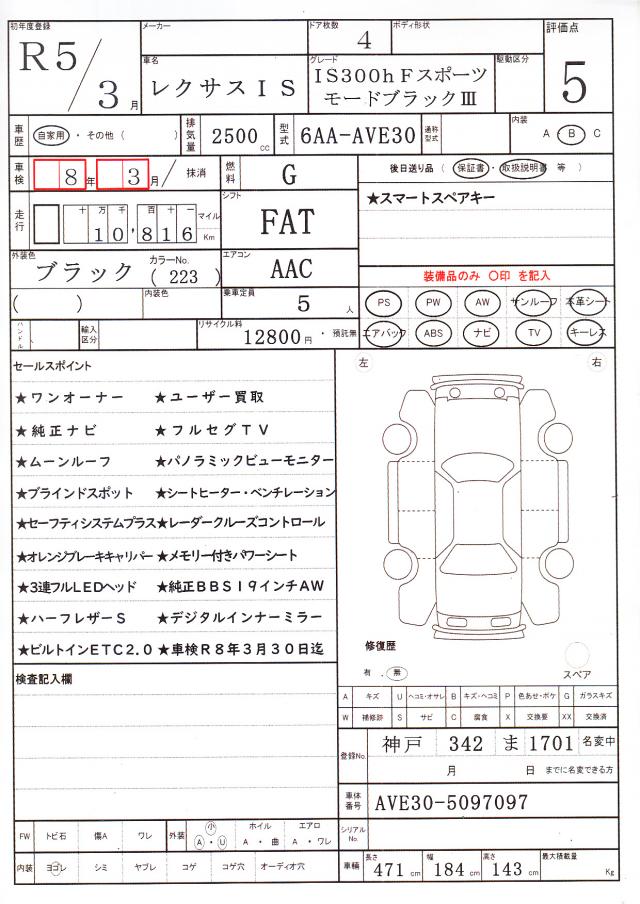 初年度登録 R5/3月
メーカー
ドア枚数 4
ボディ形状
車名 レクサスIS
グレード IS300hFスポーツ モードブラックⅢ
駆動区分
評価点 5
車歴 自家用・その他( )
排気量 2500cc
型式 6AA-AVE30
通称型式
内装 A・B C
車検 8年3月/ 抹消
燃料 G
後日送り品 ( 保証書・取扱説明書 等 )
走行 十万千百十一 10,816 マイル Km
シフト FAT
★スマートスペアキー
外装色 ブラック カラーNo. ( 223 )
エアコン AAC
装備品のみ 〇印 を記入
( ) 内装色
乗車定員 5人
PS PW AW サンルーフ 本革シート
エアバック ABS ナビ TV キーレス
ハンドル
輸入区分
リサイクル料 12800円・預託無
セールスポイント
左 右
★ワンオーナー ★ユーザー買取
★純正ナビ ★フルセグTV
★ムーンルーフ ★パノラミックビューモニター
★ブラインドスポット ★シートヒーター・ベンチレーション
★セーフティシステムプラス★レーダークルーズコントロール
★オレンジブレーキキャリパー★メモリー付きパワーシート
★3連フルLEDヘッド ★純正BBS19インチAW
★ハーフレザーS ★デジタルインナーミラー
★ビルトインETC2.0 ★車検R8年3月30日迄
修復歴
有 . 無
スペア
検査記入欄
A キズ U ヘコミ・オサレ B キズ・ヘコミ P 色あせ・ボケ G ガラスキズ
W 補修跡 S サビ C 腐食 X 交換要 XX 交換済
登録No. 神戸 342 ま 1701 名変中
月 日 までに名変できる方
車体番号 AVE30-5097097
FW トビ石 傷A ワレ
外装 小 A・U ホイル A・曲 エアロ A・ワレ
シリアルNo.
内装 ヨゴレ シミ ヤブレ コゲ コゲ穴 オーディオ穴
車輛 長さ 471cm 幅 184cm 高さ 143cm 最大積載量 Kg